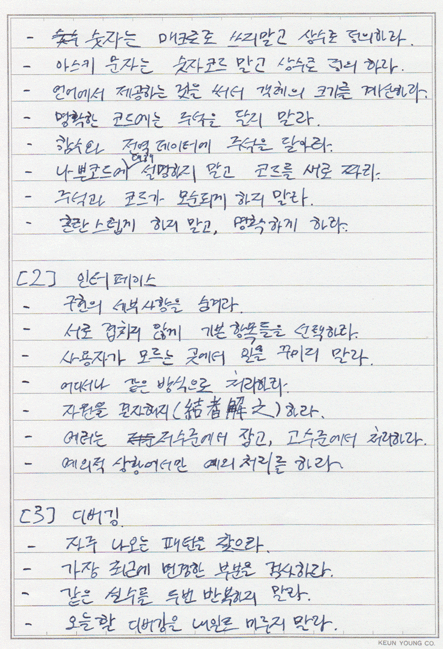 - 숫자는 매크로로 쓰지말고 상수로 정의하라.
- 아스키 문자는 숫자코드 말고 상수로 정의 하라.
- 언어에서 제공하는 것을 써서 객체의 크기를 계산하라.
- 명확한 코드에는 주석을 달지 말라.
- 함수와 전역 데이터에 주석을 달아라.
- 나쁜코드에 대해 설명하지 말고 코드를 새로 짜라.
- 주석과 코드가 모순되게 하지 말라.
- 혼란스럽게 하지 말고, 명확하게 하라.
[2] 인터페이스
- 구현의 세부사항을 숨겨라.
- 서로 겹치지 않게 기본 항목들을 선택하라.
- 사용자가 모르는 곳에서 일을 꾸미지 말라.
- 어디서나 같은 방식으로 처리하라.
- 자원을 결자해지(結者解之)하라.
- 에러는 저수준에서 잡고, 고수준에서 처리하라.
- 예외적 상황에서만 예외 처리를 하라.
[3] 디버깅
- 자주 나오는 패턴을 찾으라.
- 가장 최근에 변경한 부분을 검사하라.
- 같은 실수를 두번 반복하지 말라.
- 오늘할 디버깅을 내일로 미루지 말라.
KEUN YOUNG CO.